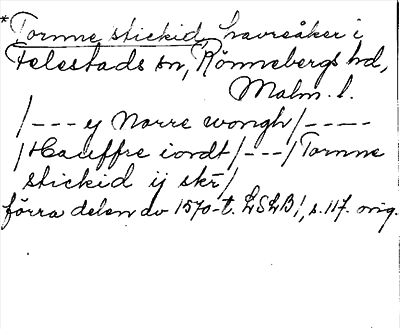 *Tornne stickid, havreåker i
Felestads sn, Rönnebergs hd,
Malm. l.
/--- y Norre wongh/----
/Hauffre iordt/---/Tornne
stickid ij skr/
förra delen av 1570-t. LSLB1, s. 117. orig.